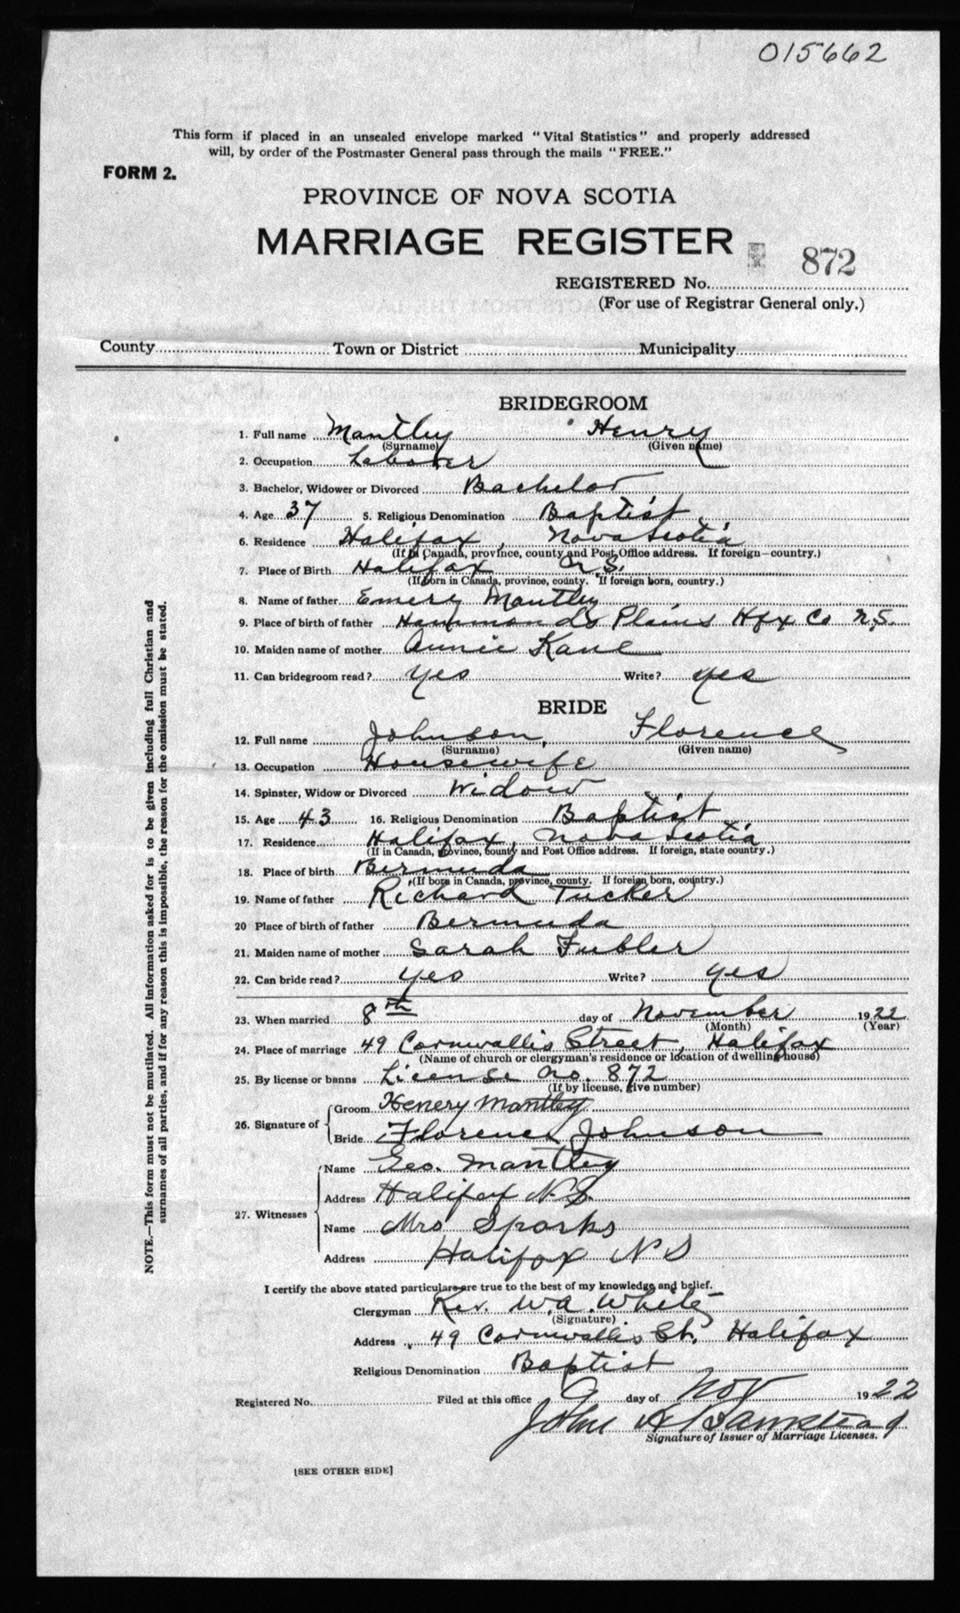 015662
This form if placed in an unsealed envelope marked "Vital Statistics" and properly addressed
will, by order of the Postmaster General pass through the mails "FREE."
FORM 2.
PROVINCE OF NOVA SCOTIA
MARRIAGE REGISTER
REGISTERED No. 872
(For use of Registrar General only.)
County Town or District Municipality
BRIDEGROOM
1. Full name Mantley Henry
(Surname) (Given name)
2. Occupation Laborer
3. Bachelor, Widower or Divorced Bachelor
4. Age 37 5. Religious Denomination Baptist
6. Residence Halifax, Nova Scotia
(If in Canada, province, county and Post Office address. If foreign—country.)
7. Place of Birth Halifax N.S.
(If born in Canada, province, county. If foreign born, country.)
8. Name of father Emery Mantley
9. Place of birth of father Hammonds Plains Hfx Co N.S.
10. Maiden name of mother Annie Kane
11. Can bridegroom read? yes Write? yes
BRIDE
12. Full name Johnson, Florence
(Surname) (Given name)
13. Occupation Housewife
14. Spinster, Widow or Divorced Widow
15. Age 43 16. Religious Denomination Baptist
17. Residence Halifax, Nova Scotia
(If in Canada, province, county and Post Office address. If foreign, state country.)
18. Place of birth Bermuda
(If born in Canada, province, county. If foreign born, country.)
19. Name of father Richard Tucker
20 Place of birth of father Bermuda
21. Maiden name of mother Sarah Fubler
22. Can bride read? yes Write? yes
23. When married 8th day of November 1922
(Month) (Year)
24. Place of marriage 49 Cornwallis Street, Halifax
(Name of church or clergyman's residence or location of dwelling house)
25. By license or banns License No. 872
(If by license, give number)
26. Signature of Groom Henery Mantley
Bride Florence Johnson
27. Witnesses Name Geo. Mantley
Address Halifax N.S.
Name Mrs Sparks
Address Halifax N S
I certify the above stated particulars are true to the best of my knowledge and belief.
Clergyman Rev. W.A. White
(Signature)
Address 49 Cornwallis St. Halifax
Religious Denomination Baptist
Registered No. Filed at this office 9 day of Nov 1922
John
Signature of Issuer of Marriage Licenses.
[SEE OTHER SIDE]
NOTE.—This form must not be mutilated. All information asked for is to be given including full Christian and
surnames of all parties, and if for any reason this is impossible, the reason for the omission must be stated.